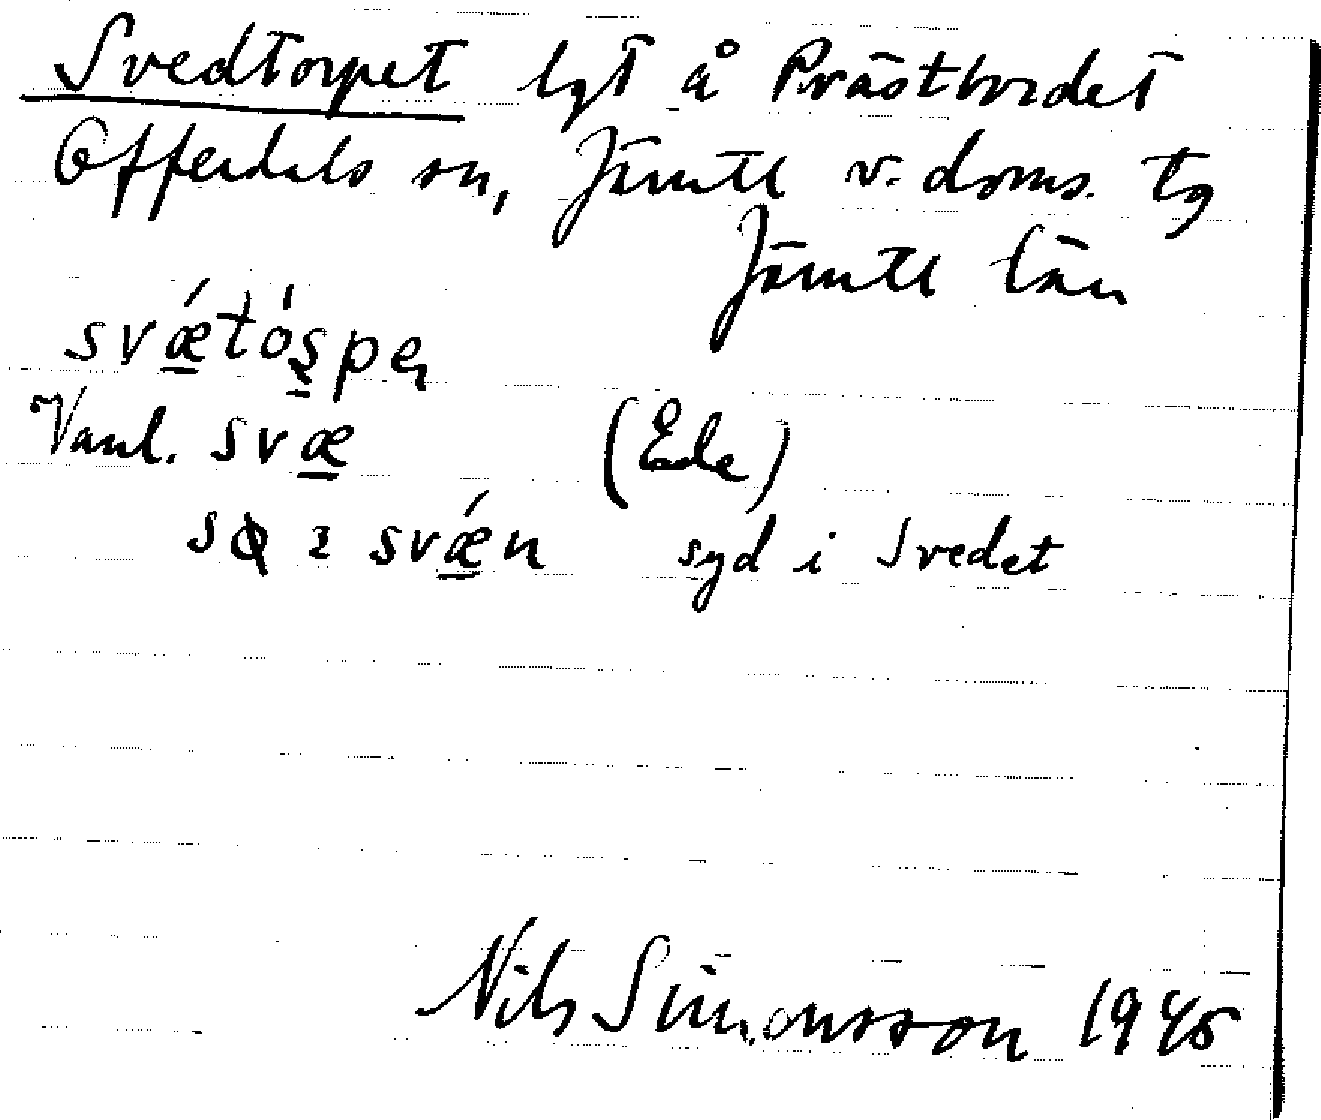 Svedtorpet lgt å Prästbordet
Offerdals sn, Jämtl v. doms. tg
Jämtl län
svǽtóspeɳ
Vanl. svæ (Ede)
svǽn syd i Svedet
Nils Simonsson 1945